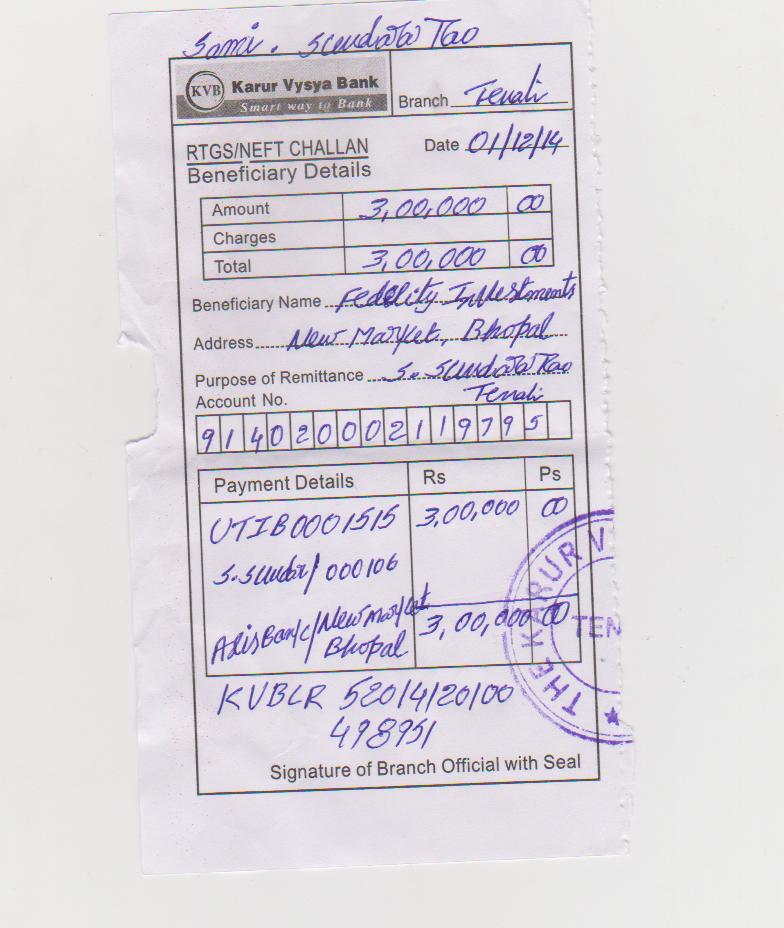 Sami. Sundara Rao
KVB Karur Vysya Bank
Smart way to Bank
Branch Tenali
RTGS/NEFT CHALLAN
Date 01/12/14
Beneficiary Details
Amount 3,00,000 00
Charges
Total 3,00,000 00
Beneficiary Name Fedelity Investments
Address New Market, Bhopal
Purpose of Remittance S. Sundara Rao
Tenali
Account No.
914020002119795
Payment Details Rs Ps
UTIB0001515 3,00,000 00
S. Sundar/000106
Axis Bank/New Market 3,00,000 00
Bhopal
KVBLR 52014/20/00
498951
Signature of Branch Official with Seal
THE KARUR V
TEN